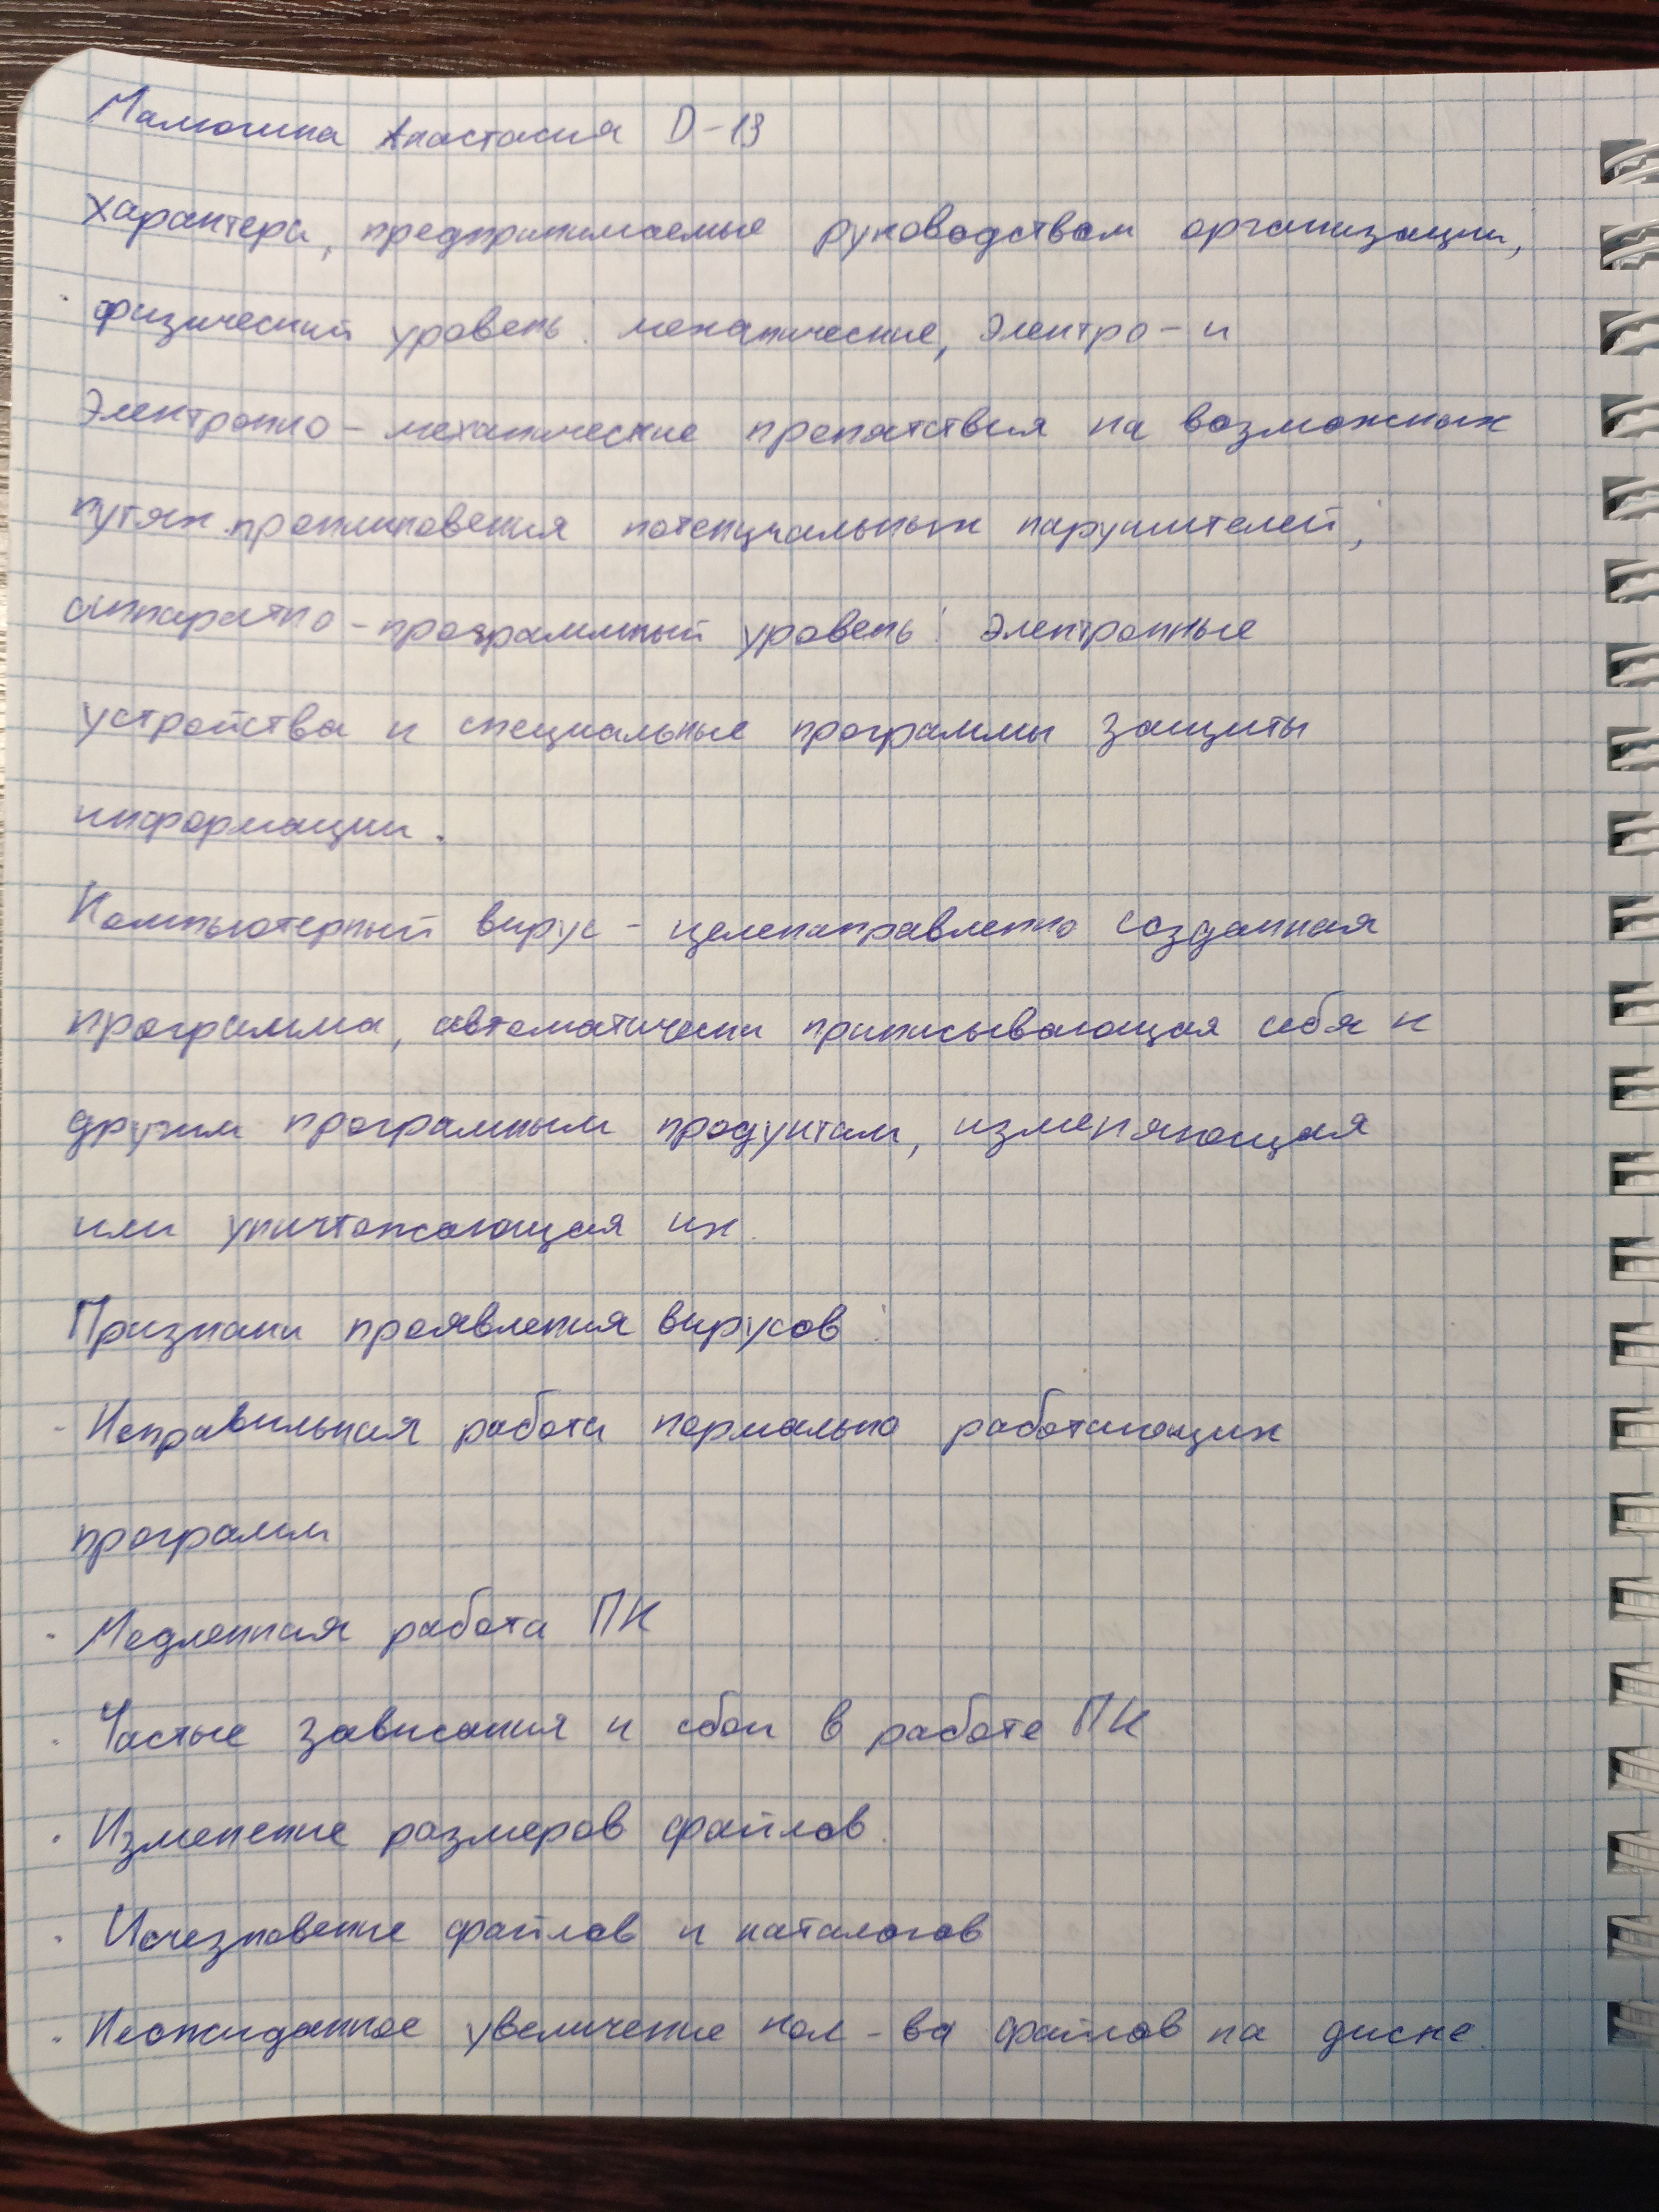 Малюгина Анастасия D-13
характера, предпринимаемые руководством организации,
физический уровень: механические, электро- и
электронно-механические препятствия на возможных
путях проникновения потенциальных нарушителей;
аппаратно-программный уровень: электронные
устройства и специальные программы защиты
информации.
Компьютерный вирус - целенаправленно созданная
программа, автоматически приписывающая себя к
другим програмным продуктам, изменяющая
или уничтожающая их.
Признаки проявления вирусов:
- Неправильная работа нормально работающих
программ
- Медленная работа ПК
- Частые зависания и сбои в работе ПК
· Изменение размеров файлов.
· Исчезновение файлов и каталогов
· Неожиданное увеличение кол-ва файлов на диске.